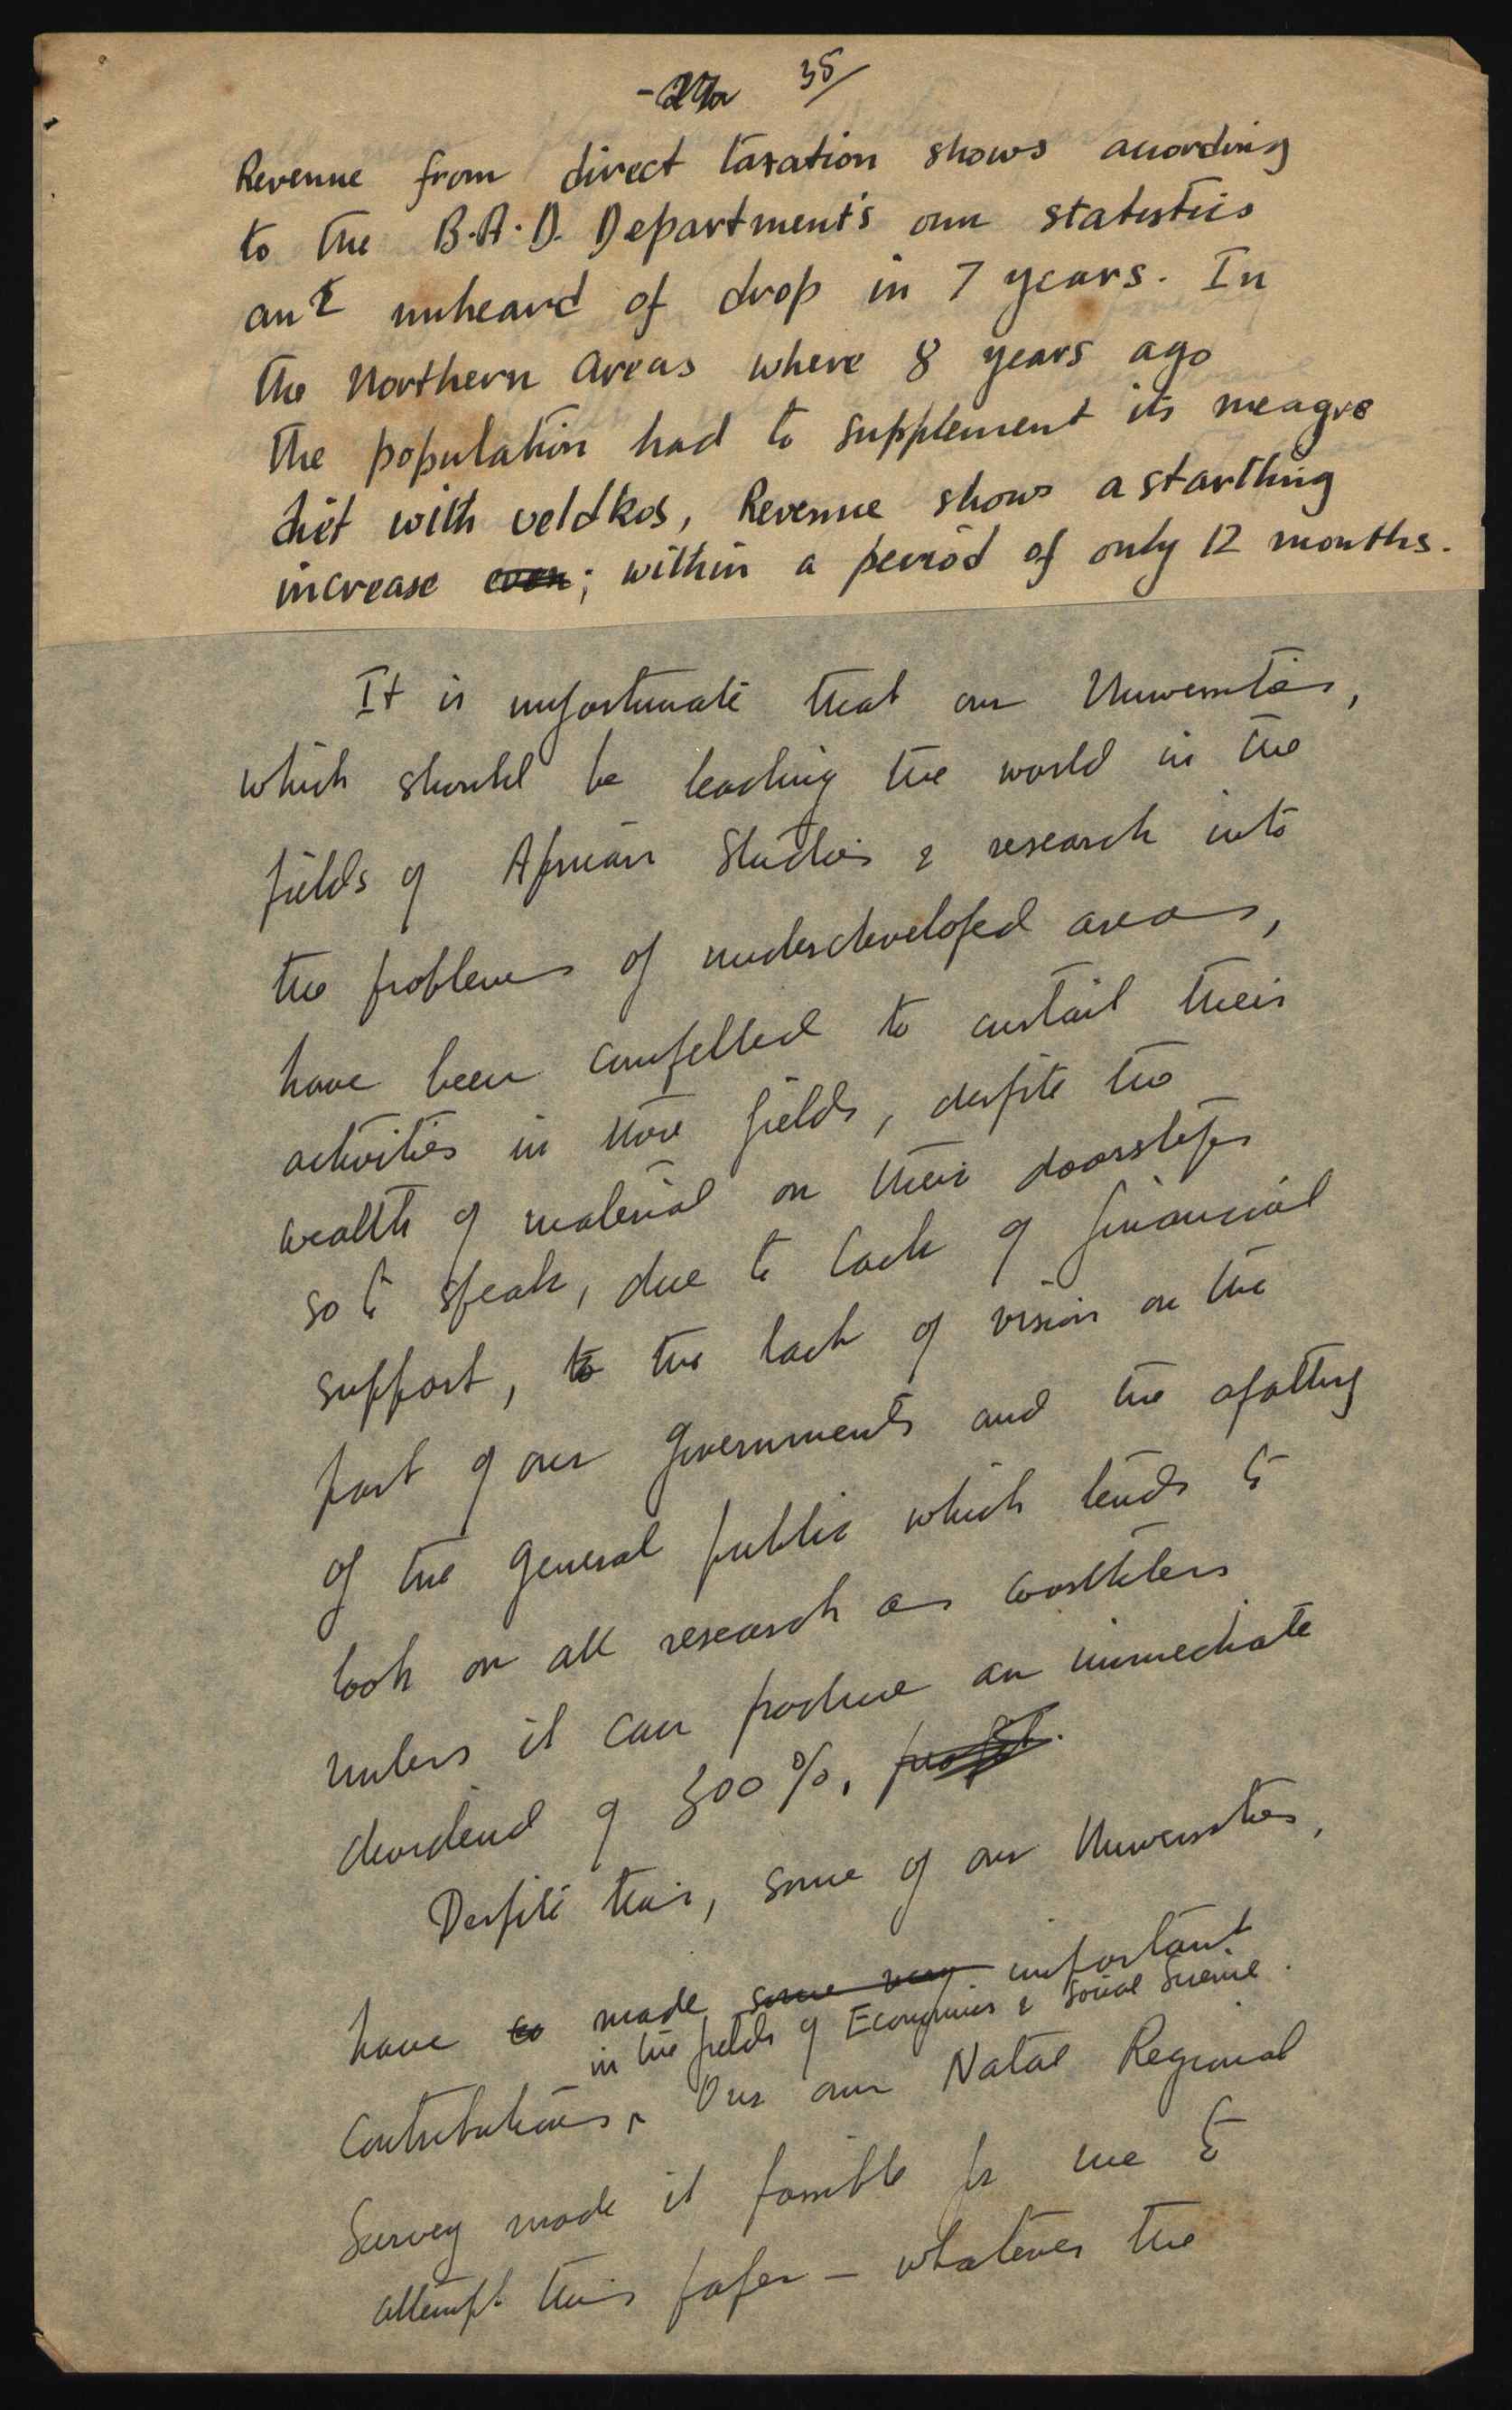 35/
Revenue from direct taxation shows according
to the B.A.D. Department's own statistics
an unheard of drop in 7 years. In
the Northern Areas where 8 years ago
the population had to supplement its meagre
diet with veldkos, Revenue shows a starthing
increase even; within a period of only 12 months.
It is unfortunate that our Universities,
which should be leading the world in the
fields of African Studies & research into
the problems of underdeveloped areas,
have been compelled to curtail their
activities in these fields, despite the
wealth of material on their doorsteps
so to speak, due to lack of financial
support, to the lack of vision on the
part of our Governments and the apathy
of the general public which tends to
look on all research as worthless
unless it can produce an immediate
dividend of 300%. profit.
Despite this, some of our Universities,
have made some very important
in the fields of Economics & Social Science.
Contributions. Our own Natal Regional
Survey made it possible for me to
attempt this paper – whatever the